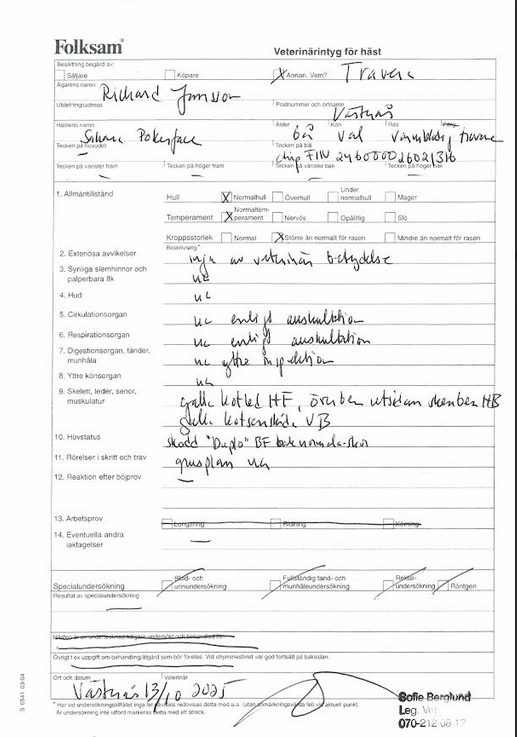 Folksam
Veterinärintyg för häst
Besiktning begärd av:
Säljare Köpare Annan. Vem? Travera
Ägarens namn
Richard Jonsson
Utdelningsadress Postnummer och ortnamn
Västerås
Hästens namn Ålder Kön Ras
Pokerface 6 år Val varmblodig travare
Tecken på huvudet Tecken på bål
chip FIN 246000026021316
Tecken på vänster fram Tecken på höger fram Tecken på vänster bak Tecken på höger bak
1. Allmäntillstånd Hull Normalhull Överhull Under normalhull Mager
Temperament Normaltemperament Nervös Opålitlig Slö
Kroppsstorlek Normal Större än normalt för rasen Mindre än normalt för rasen
Beskrivning*
2. Exteriöra avvikelser inga av veterinär betydelse
3. Synliga slemhinnor och palperbara llk ua
4. Hud ua
5. Cirkulationsorgan ua enligt auskultation
6. Respirationsorgan ua enligt auskultation
7. Digestionsorgan, tänder, munhåla ua yttre inspektion
8. Yttre könsorgan ua
9. Skelett, leder, senor, muskulatur galla kotled HF, överben utsidan skenben HB
galla kotsenskida VB
10. Hovstatus skodd "Duplo" BF bak normala skor
11. Rörelser i skritt och trav grusplan ua
12. Reaktion efter böjprov —
13. Arbetsprov Longering Ridning Körning
14. Eventuella andra iakttagelser —
Specialundersökning Blod- och urinundersökning Fullständig tand- och munhåleundersökning Rektalundersökning Röntgen
Resultat av specialundersökning
Hästen är av undertecknad tidigare undersökt och behandlad för:
Övrigt t ex uppgift om behandling/åtgärd som bör företas. Vid utrymmesbrist var god fortsätt på baksidan.
Ort och datum Veterinär
Västerås 13/10 2025
* Har vid undersökningstillfället inga fel påvisats redovisas detta med u.a. (utan anmärkning) vid aktuell punkt.
Är undersökning inte utförd markeras detta med ett streck.
Sofie Berglund
Leg. Vet
070-212 08 12
S 0541 03-04